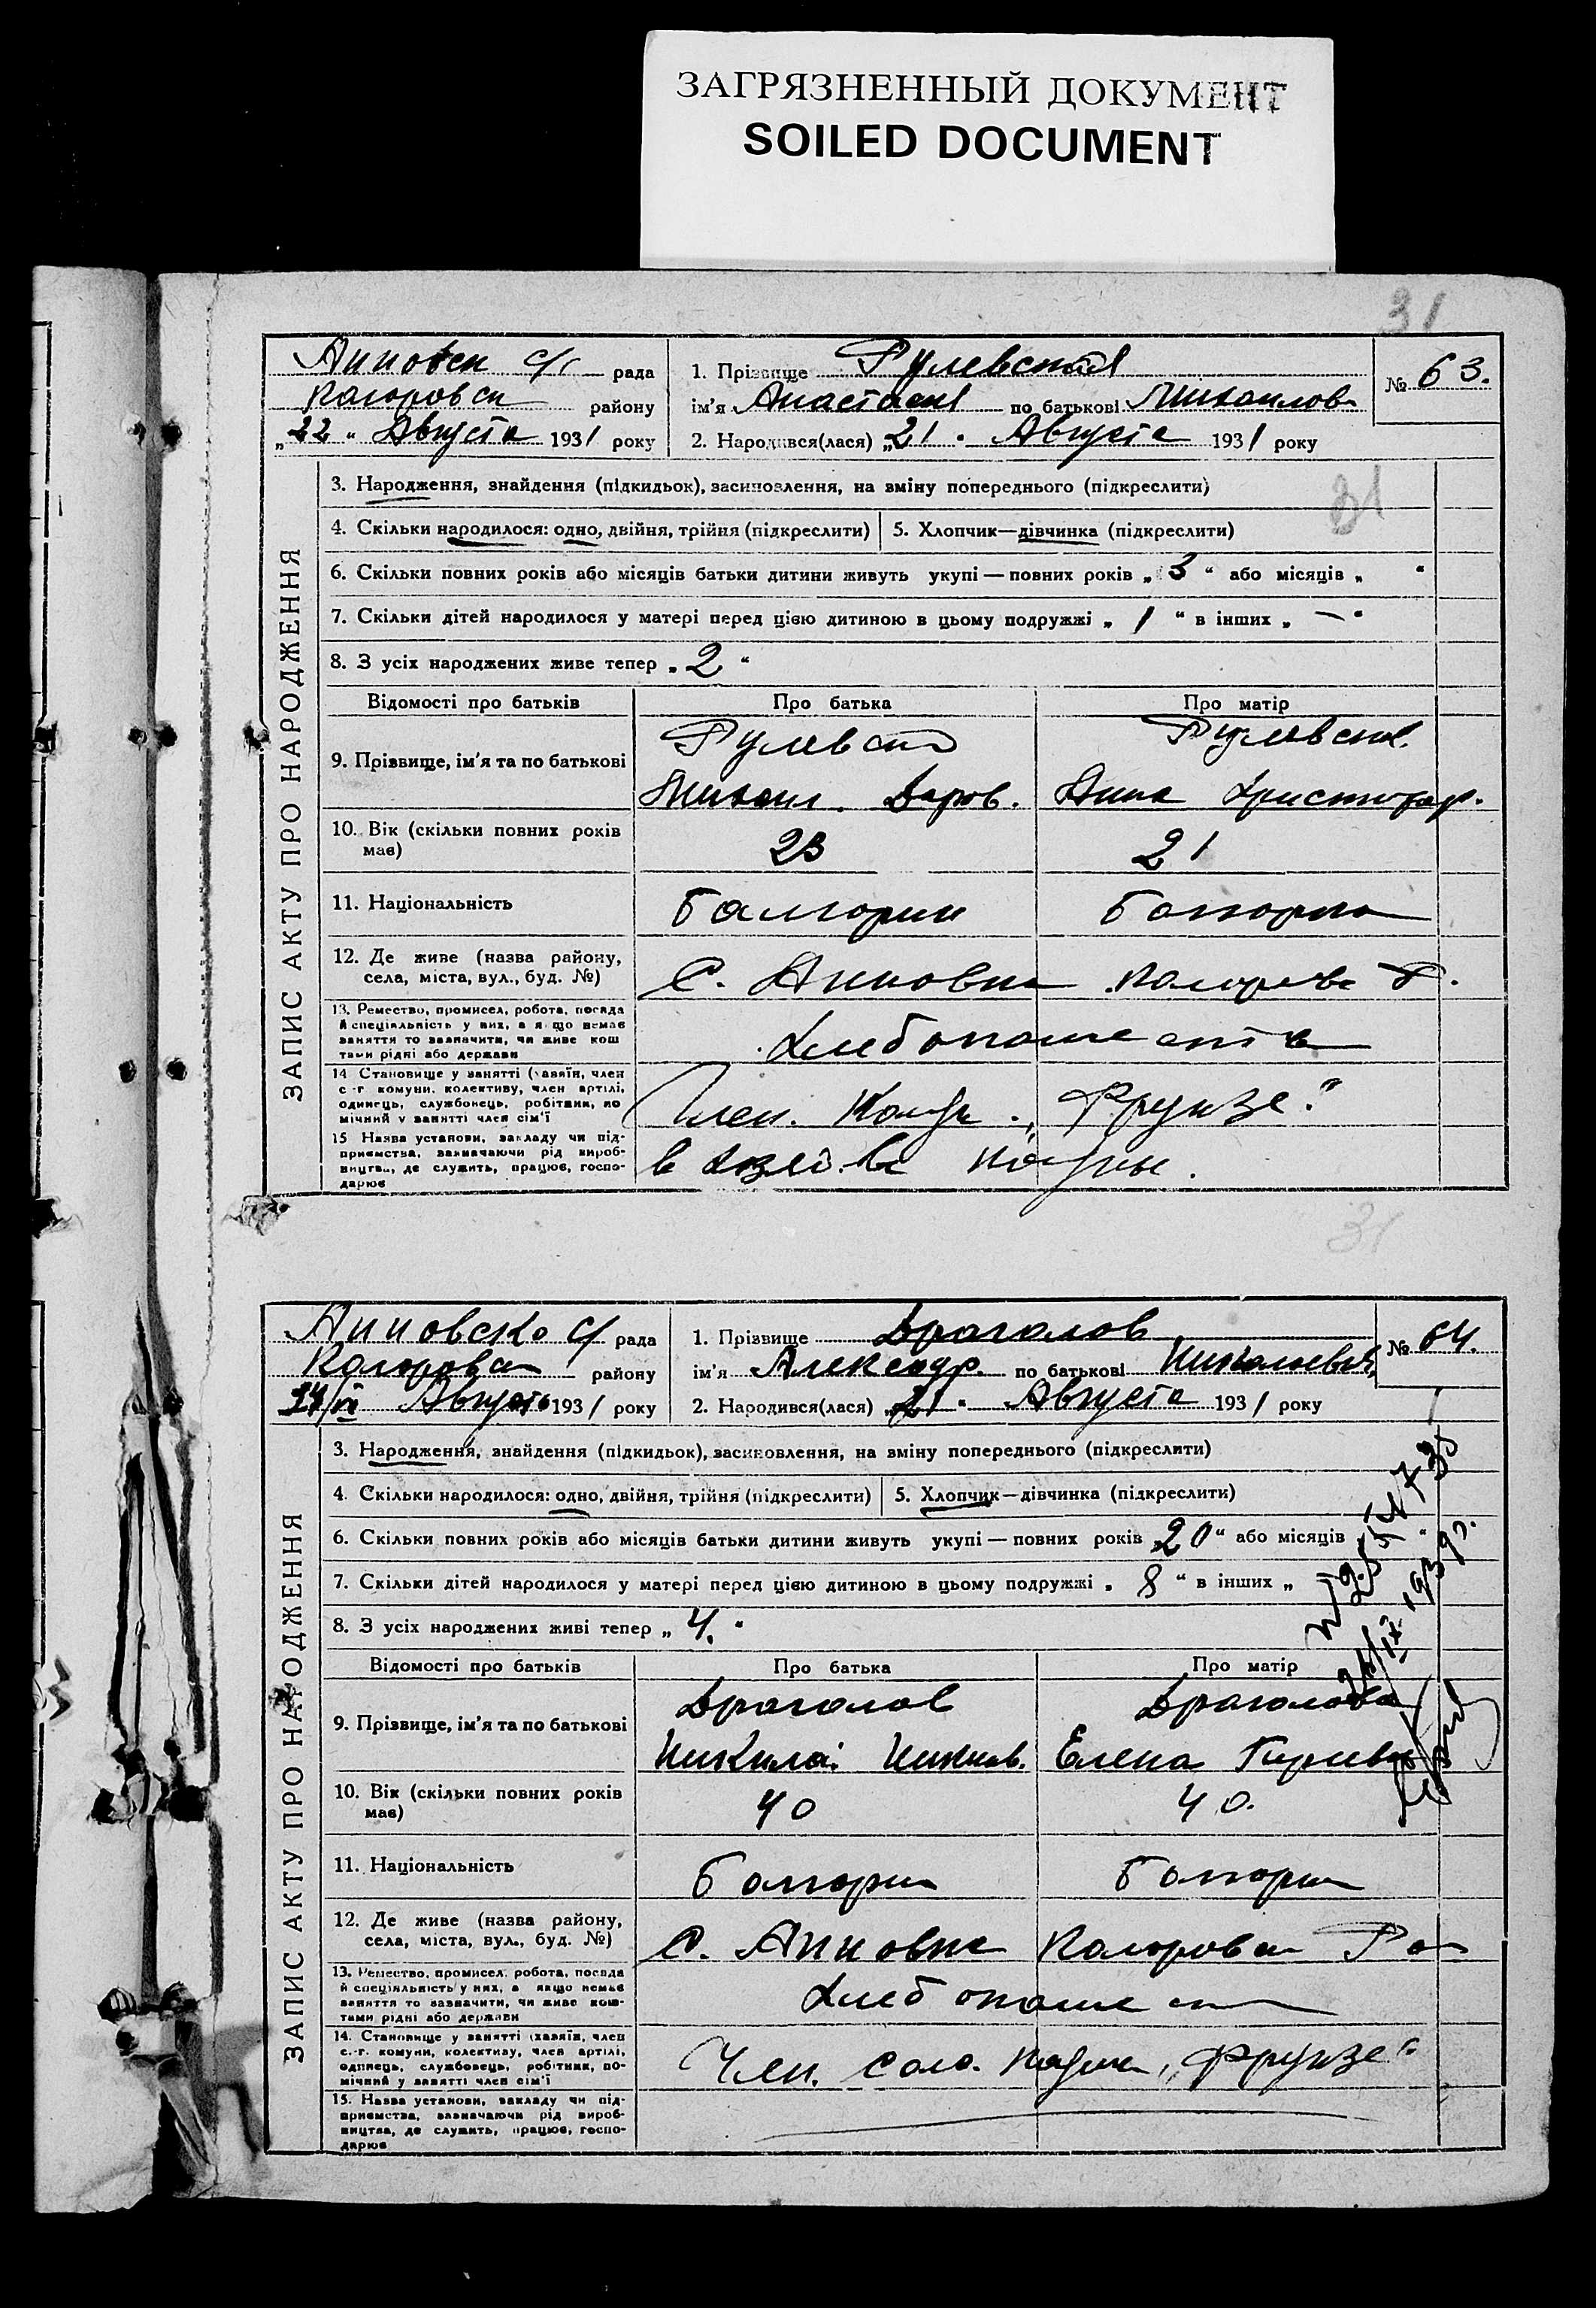 ЗАГРЯЗНЕННЫЙ ДОКУМЕНТ
SOILED DOCUMENT
31
Анновск с/ рада
1. Прізвище Рулевская
№ 63.
району
ім'я Анастасия по батькові Михаилов
„22“ Августа 1931 року
2. Народився(лася) „21“ Августа 1931 року
3. Народження, знайдення (підкидьок), засиновлення, на зміну попереднього (підкреслити)
31
4. Скільки народилося: одно, двійня, трійня (підкреслити)
5. Хлопчик—дівчинка (підкреслити)
6. Скільки повних років або місяців батьки дитини живуть укупі — повних років „3“ або місяців „ “
7. Скільки дітей народилося у матері перед цією дитиною в цьому подружжі „1“ в інших „—“
8. З усіх народжених живе тепер „2“
ЗАПИС АКТУ ПРО НАРОДЖЕННЯ
Відомості про батьків
Про батька
Про матір
9. Прізвище, ім'я та по батькові
Рулевск
Рулевск
Михаил.
Анна Христофор.
10. Вік (скільки повних років
має)
23
21
11. Національність
Болгорин
Болгорка
12. Де живе (назва району,
села, міста, вул., буд. №)
С. Анновка
Р.
13. Ремество, промисел, робота, посада
й спеціяльність у них, а якщо немає
заняття то зазначити, чи живе кош
тами рідні або держави
Хлебопашество
14 Становище у занятті (хазяїн, член
с-г комуни, колективу, член артілі,
одинець, службовець, робітник, по
мічний у занятті член сім'ї
Член. „Фрунзе“
15 Назва установи, закладу чи під-
приємства, зазначаючи рід вироб-
ництва, де служить, працює, госпо-
дарює
в
31
Анновско с/ рада
1. Прізвище Драголов
№ 64.
району
ім'я Александр. по батькові Николаевич
Августа 1931 року
2. Народився(лася) „21“ Августа 1931 року
3. Народження, знайдення (підкидьок), засиновлення, на зміну попереднього (підкреслити)
4. Скільки народилося: одно, двійня, трійня (підкреслити)
5. Хлопчик—дівчинка (підкреслити)
6. Скільки повних років або місяців батьки дитини живуть укупі — повних років „20“ або місяців
7. Скільки дітей народилося у матері перед цією дитиною в цьому подружжі „8“ в інших „
8. З усіх народжених живі тепер „4.“
ЗАПИС АКТУ ПРО НАРОДЖЕННЯ
Відомості про батьків
Про батька
Про матір
9. Прізвище, ім'я та по батькові
Драголов
Драголова
Николай
Елена
10. Вік (скільки повних років
має)
40
40.
11. Національність
Болгорин
Болгорин
12. Де живе (назва району,
села, міста, вул., буд. №)
С. Анновка
13. Ремество, промисел, робота, посада
й спеціяльність у них, а якщо немає
заняття то зазначити, чи живе кош-
тами рідні або держави
Хлебопаше
14. Становище у занятті (хазяїн, член
с.-г. комуни, колективу, член артілі,
одинець, службовець, робітник, по-
мічний у занятті член сім'ї
Член. „Фрунзе“
15. Назва установи, закладу чи під-
приємства, зазначаючи рід вироб-
ництва, де служить, працює, госпо-
дарює